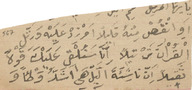 او نقص منه قليلا او زد عليه ورتل
القرآن ترتيلا انا سنلقى عليك قولا
ثقيلا ان ناشئة اليل هى اشد وطئا و